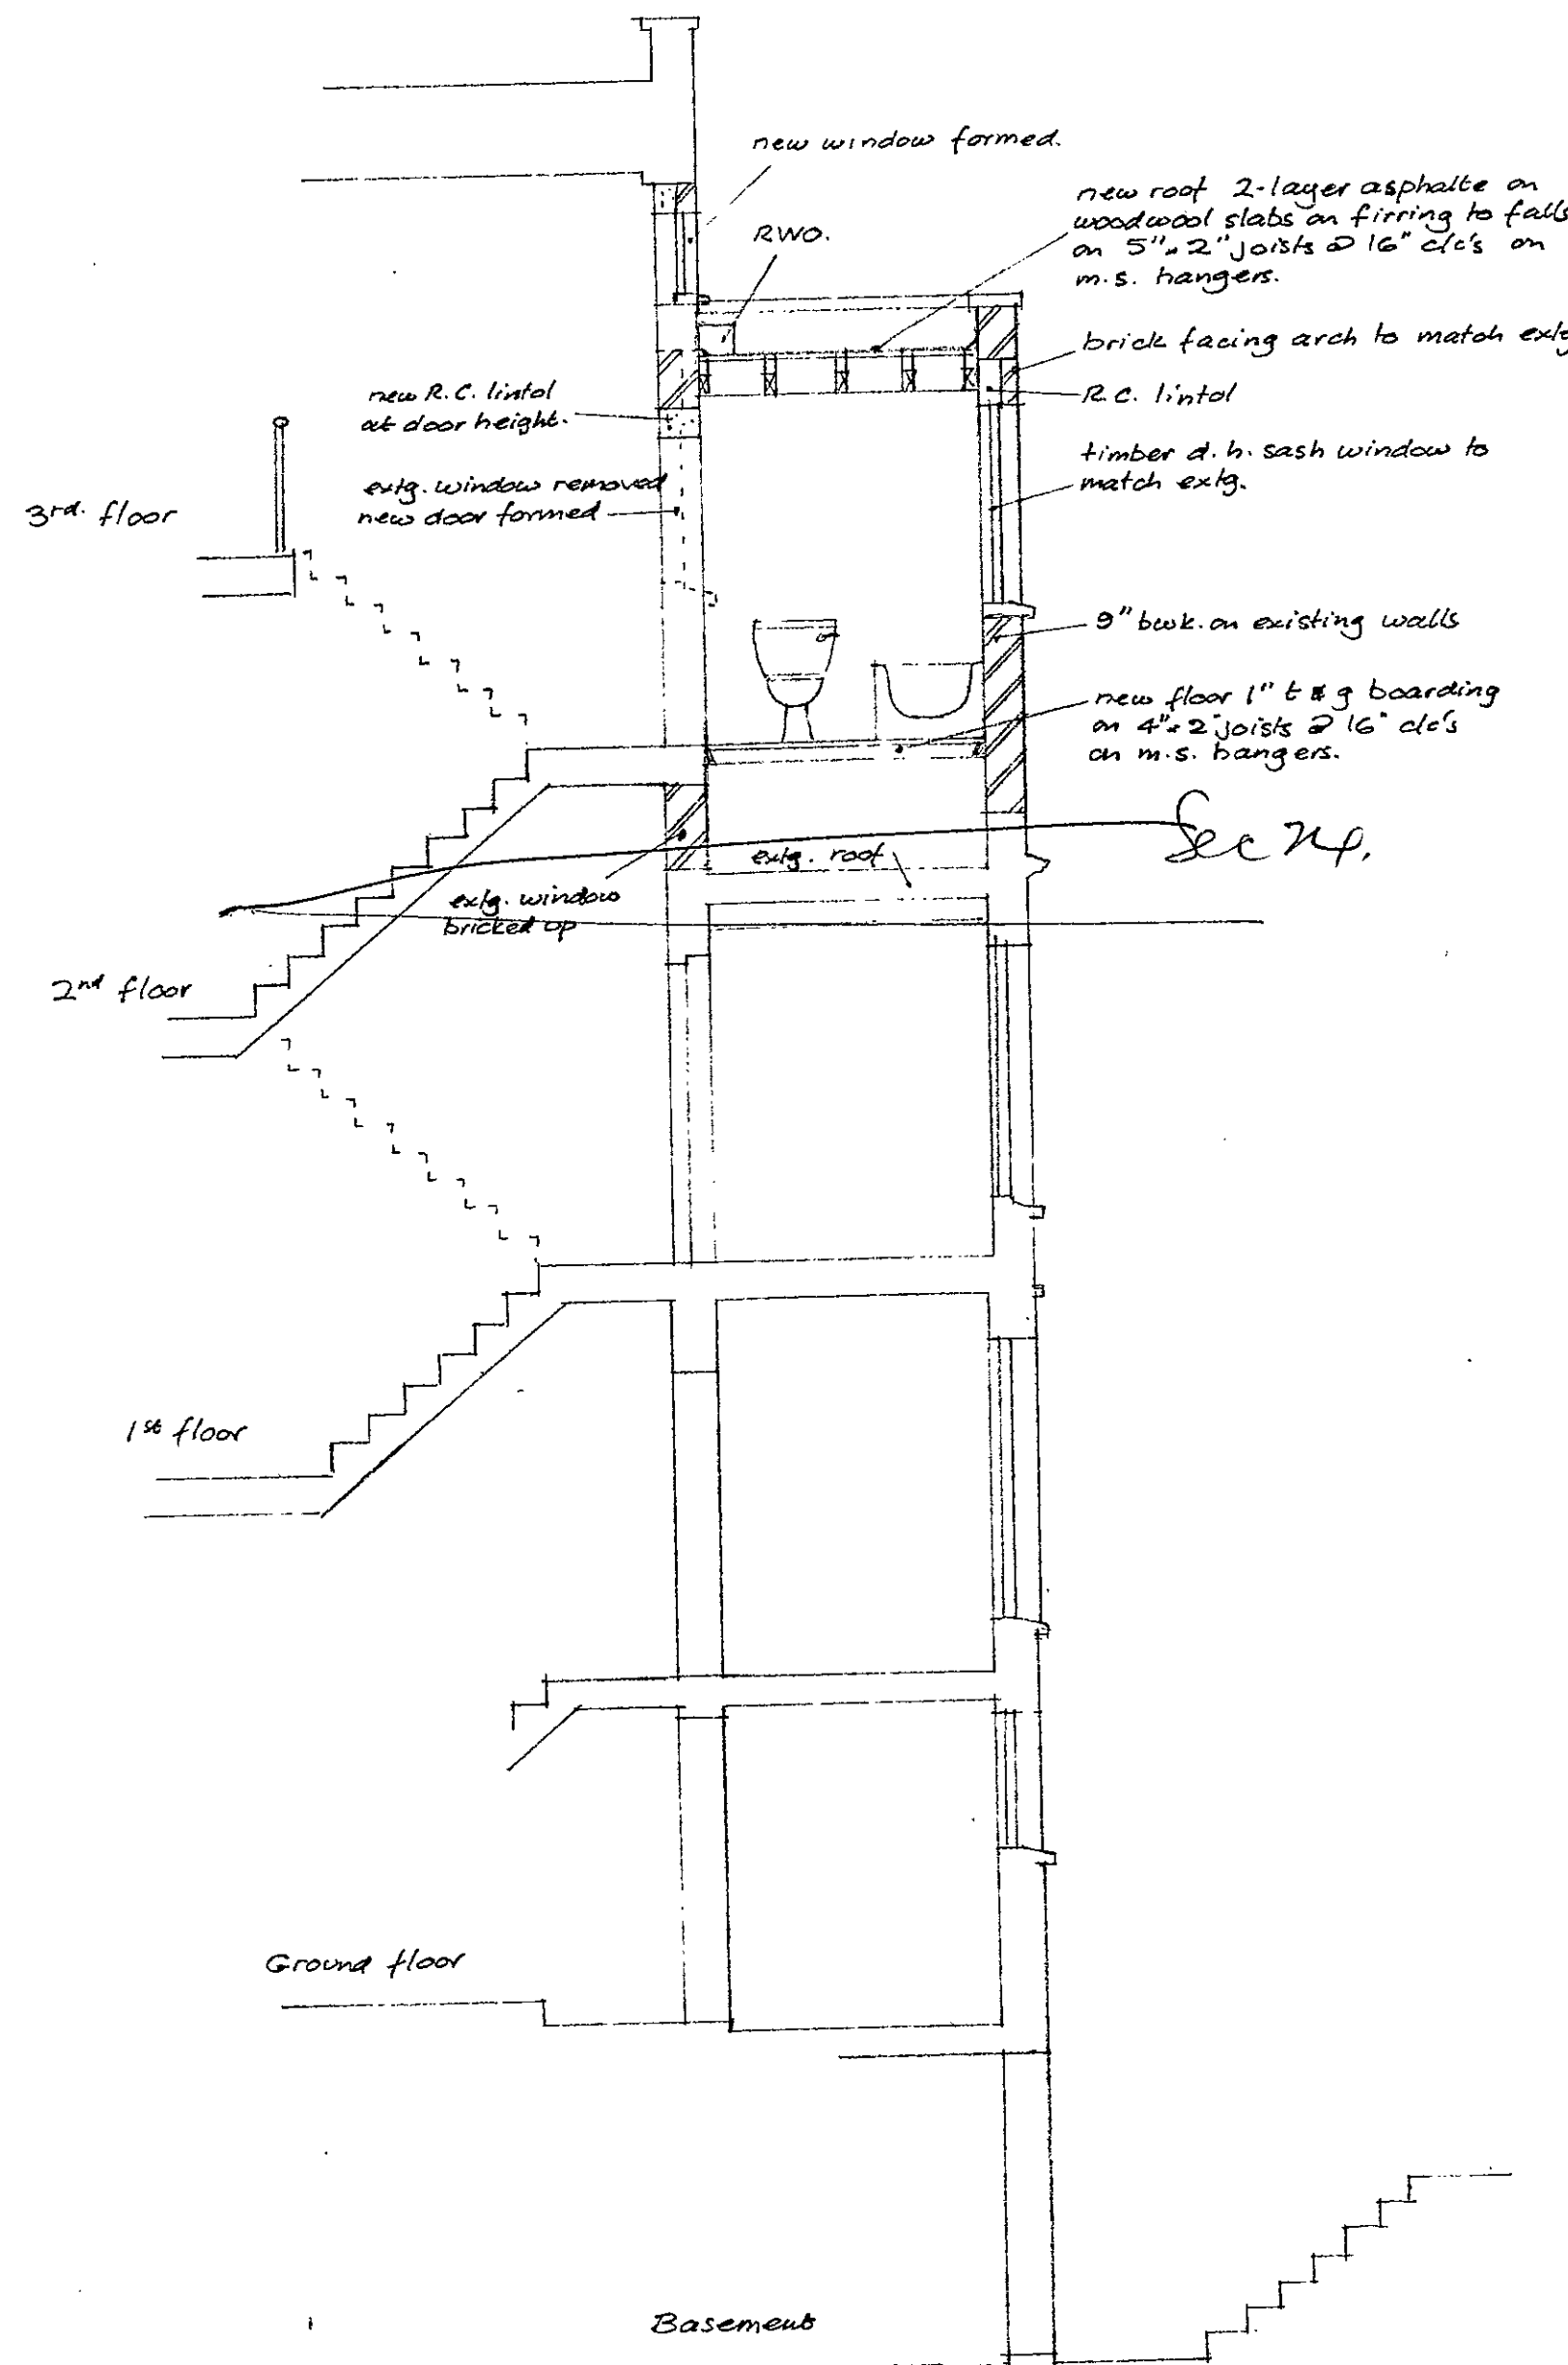 new window formed.
new roof 2-layer asphalte on
woodwool slabs on firring to falls
on 5"x 2" joists @ 16" c/c's on
m.s. hangers.
RWO.
brick facing arch to match extg
new R.C. lintol
at door height.
R.C. lintol
timber d.h. sash window to
match extg.
extg. window removed
new door formed
3rd. floor
9" bwk. on existing walls
new floor 1" t & g boarding
on 4"x 2" joists @ 16" c/c's
on m.s. hangers.
extg. roof
extg. window
bricked up
2nd floor
1st floor
Ground floor
Basement